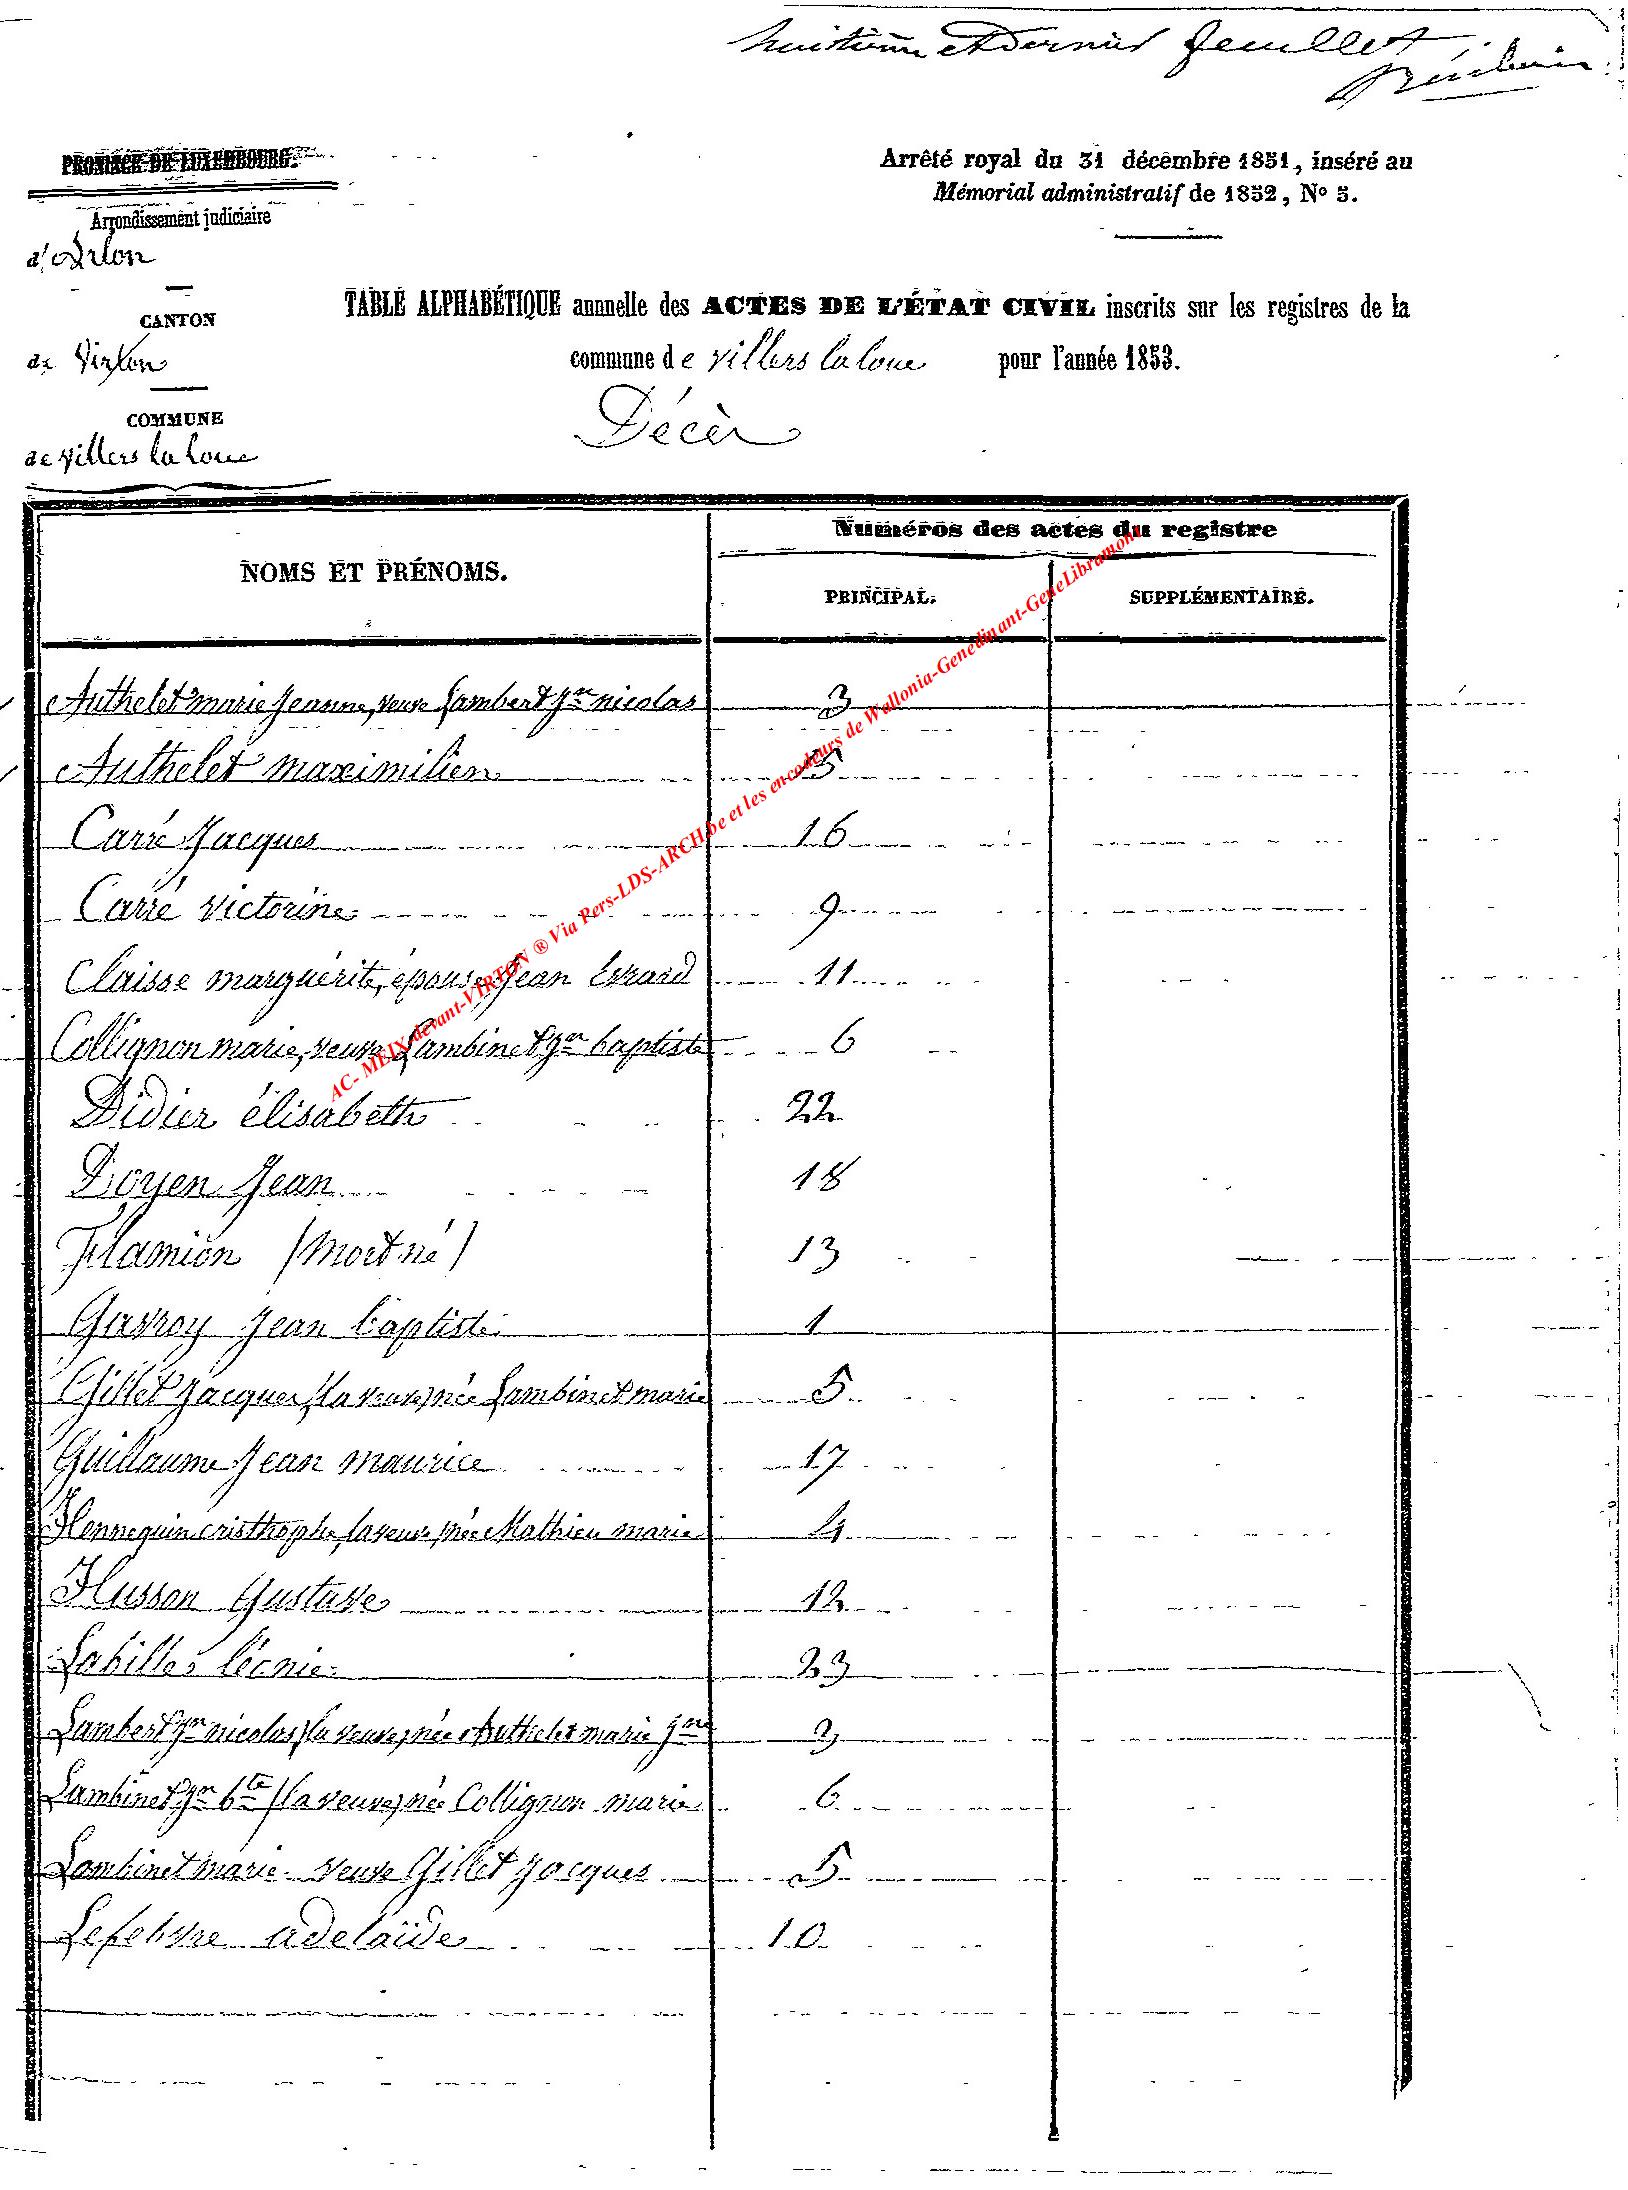 huitième et dernier feuillet
PROVINCE DE LUXEMBOURG.
Arrondissement judiciaire
d'Arlon
CANTON
de Virton
COMMUNE
de villers la loue
Arrêté royal du 31 décembre 1851, inséré au
Mémorial administratif de 1852, N° 5.
TABLE ALPHABÉTIQUE annnelle des ACTES DE L'ÉTAT CIVIL inscrits sur les registres de la
commune de villers la loue pour l'année 1853.
Décès
NOMS ET PRÉNOMS.
Numéros des actes du registre
PRINCIPAL.
SUPPLÉMENTAIRE.
Authelet marie Jeanne, veuve Lambert Jn nicolas 3
Authelet maximilien 15
Carré Jacques 16
Carré victorine 9
Claisse marguérite, épouse Jean Evrard 11
Collignon marie, veuve Lambinet Jn baptiste 6
Didier élisabeth 22
Doyen Jean 18
Flamion (mort né) 13
Gavroy Jean baptiste 1
Gillet Jacques (la veuve) née Lambinet marie 5
Guillaume Jean maurice 17
Hennequin cristhophe, la veuve, née Mathieu marie 4
Husson Gustave 12
Labilles léonie 23
Lambert Jn nicolas (la veuve) née Authelet marie Jne 3
Lambinet Jn bte (la veuve) née Collignon marie 6
Lambinet marie veuve Gillet Jacques 5
Lefebvre adelaïde 10
AC- MEIX-devant-VIRTON ® Via Pers-LDS-ARCH.be et les encodeurs de Wallonia-Genedinant-GeneLibramont